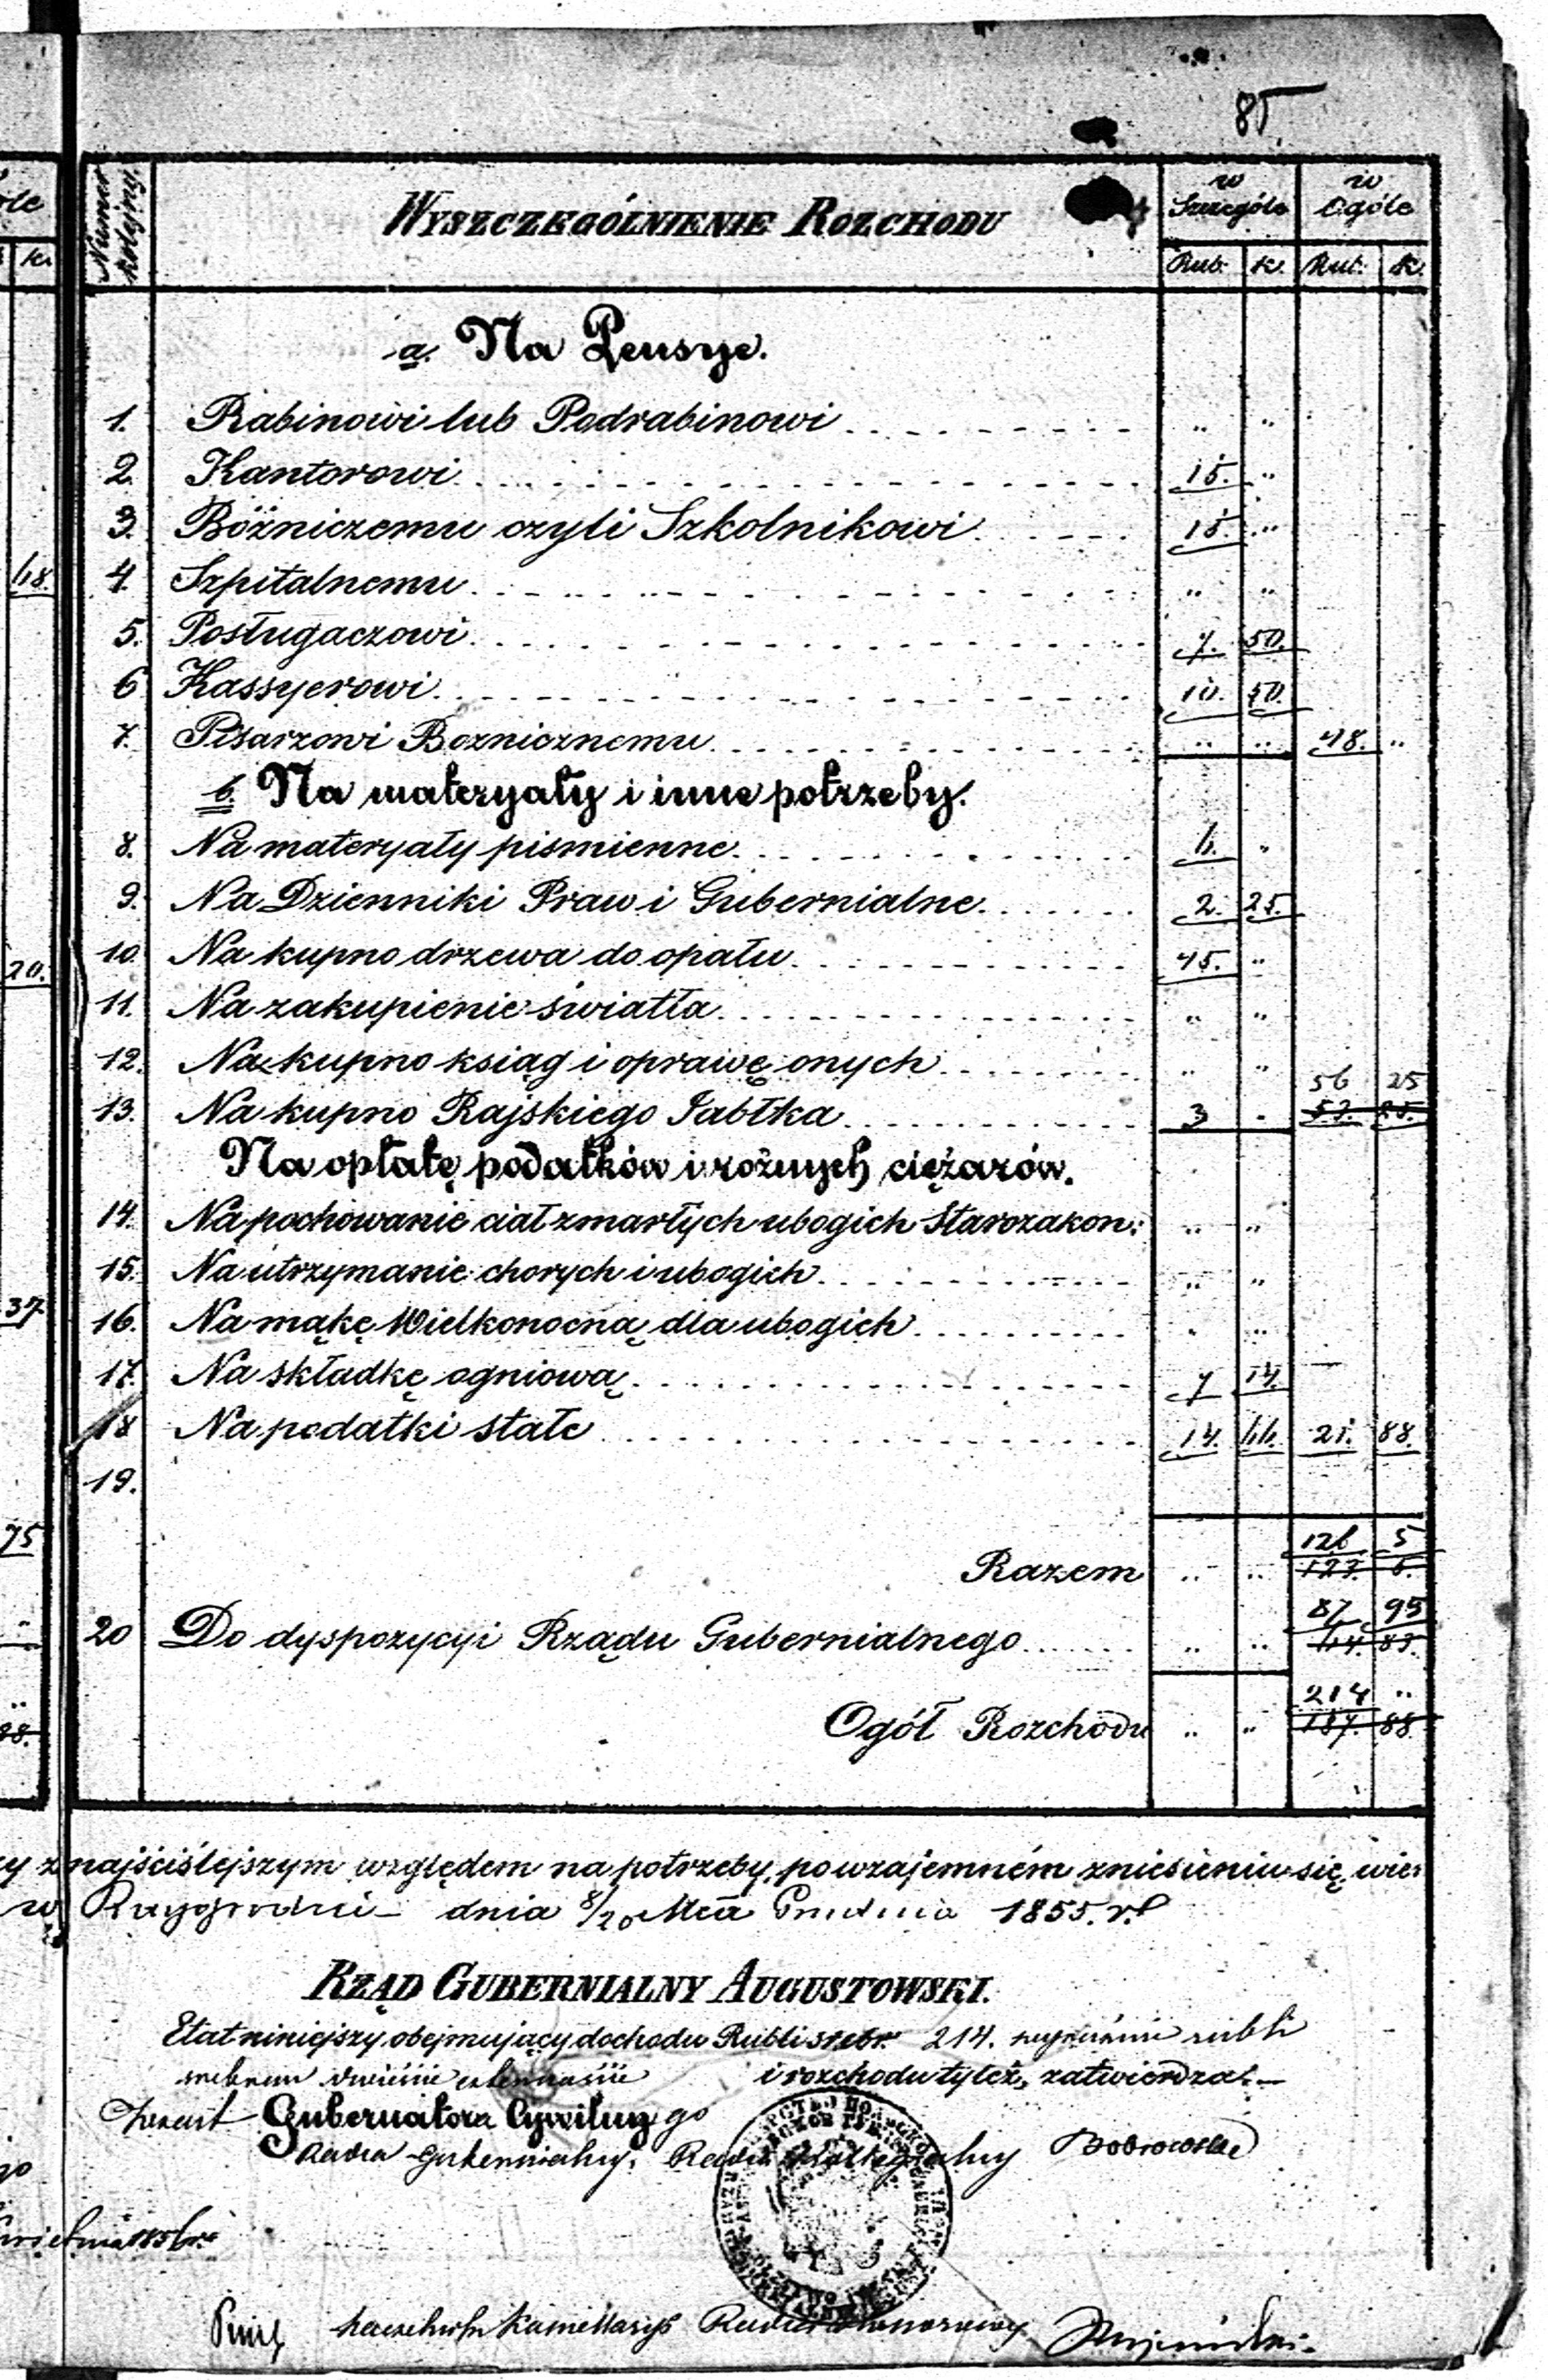 85
Numer kolejny
WYSZCZEGÓLNIENIE ROZCHODU
w Szczególe
w Ogóle
Rub. k. Rub. k.
a. Na Pensye.
1. Rabinowi lub Podrabinowi " "
2. Kantorowi 15. "
3. Bóżniczemu czyli Szkolnikowi 15. "
4. Szpitalnemu " "
5. Posługaczowi 7. 50.
6 Kassyerowi 10. 50.
7. Pisarzowi Boznicznemu " " 48. "
b. Na materyały i inne potrzeby.
8. Na materyały pismienne 6. "
9. Na Dzienniki Praw i Gubernialne 2. 25.
10. Na kupno drzewa do opału 45. "
11. Na zakupienie światła " "
12. Na kupno ksiąg i oprawę onych " "
56 25
13. Na kupno Rajskiego Jabłka 3 " 53. 25.
Na opłatę podatków i rożnych ciężarów.
14. Na pochowanie ciał zmarłych ubogich Starozakon: " "
15. Na utrzymanie chorych i ubogich " "
16. Na mąkę Wielkonocną dla ubogich " "
17. Na składkę ogniową 7 14.
18 Na podatki stałe 14. 66. 21. 88.
19.
126 5
Razem " " 123. 5.
87 95
20 Do dyspozycyi Rządu Gubernialnego " " 64. 83.
214 "
Ogół Rozchodu " " 187. 88
najściślejszym względem na potrzeby, po wzajemném zniesieniu się, wie
w Raygrodzie dnia 8/20 Mca Grudnia 1855. r.
RZĄD GUBERNIALNY AUGUSTOWSKI.
Etat niniejszy obejmujący dochodu Rubli srebr. 214. wyraźnie rubli
srebrem dwieście czternaście i rozchodu tyleż, zatwierdza.
Gubernatora Cywilnego
Radca Gubernialny, Radca Kollegialny Dobrowolski
Naczelnik Kancellaryi Radca Honorowy